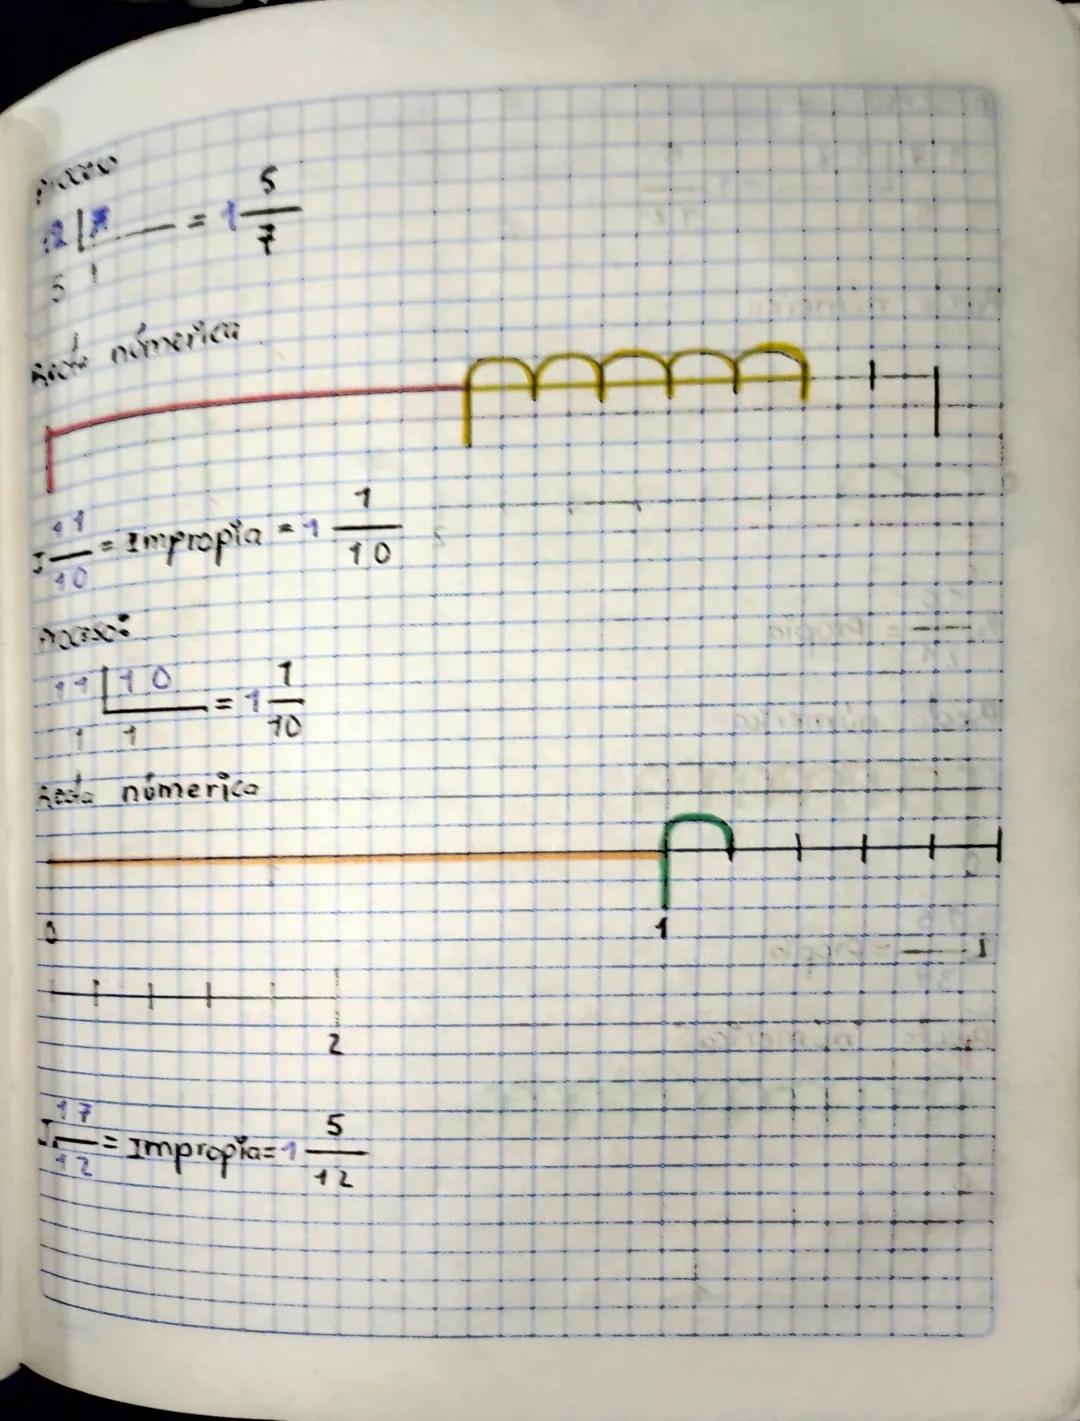 Proceso
12 | 7 = 1 5/7
5 1
Recta númerica
11/10 = Impropia = 1 1/10
Proceso:
11 | 10 = 1 1/10
1 1
Recta númerica
0 1
2
17/12 = Impropia = 1 5/12